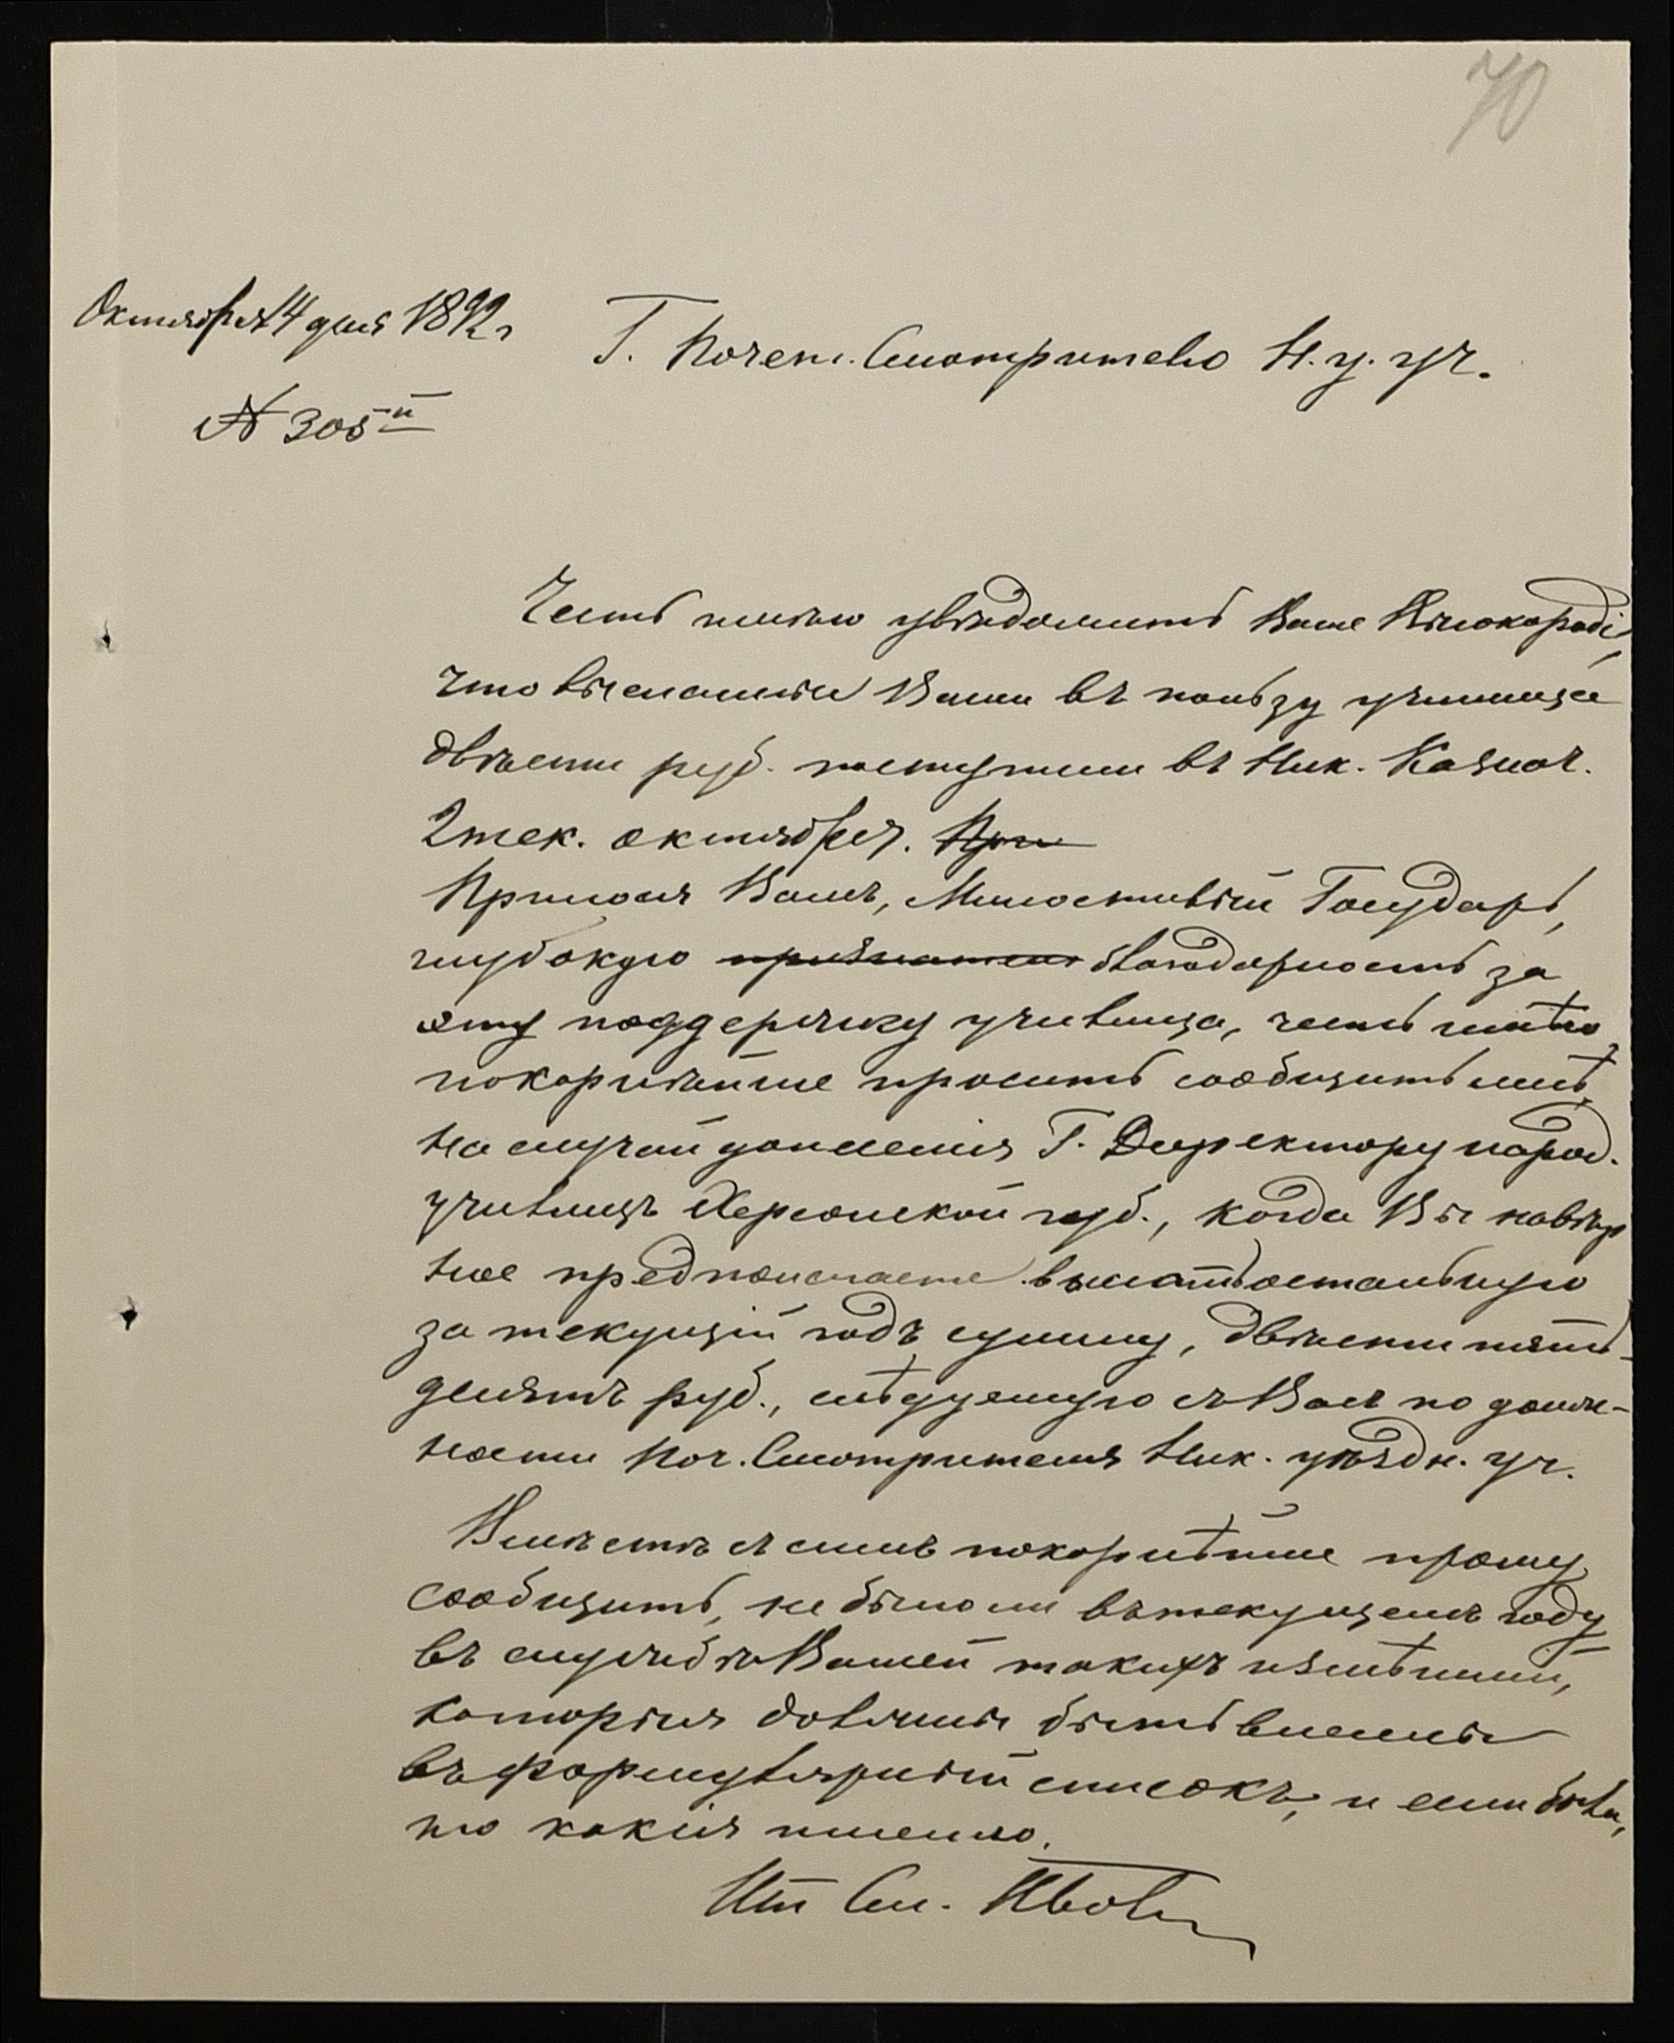 70
Октября 14 дня 1892 г
Г. Почетн. Смотрителю Н. у. уч.
№ 305й
Честь имѣю увѣдомить Ваше Высокородіе,
что высланные Вами въ пользу училища
двѣсти руб. поступили въ Ник. Казнач.
2 тек. октября. При
Принося Вамъ, Милостивый Государь,
глубокую признательн благодарность за
эту поддержку училища, честь имѣю
покорнѣйше просить сообщить мнѣ,
на случай донесенія Г. Директору народ.
училищъ Херсонской губ., когда Вы навѣр
ное предполагаете выслать остальную
за текущій годъ сумму, двѣсти пять-
десятъ руб., слѣдуемую съ Васъ по долж-
ности Поч. Смотрителя Ник. уѣздн. уч.
Вмѣстѣ съ симъ покорнѣйше прошу
сообщить, не было ли въ текущемъ году
въ службѣ Вашей такихъ измѣненій,
которыя должны быть внесены
въ формулярный списокъ, и если были,
то какія именно.
Шт См.